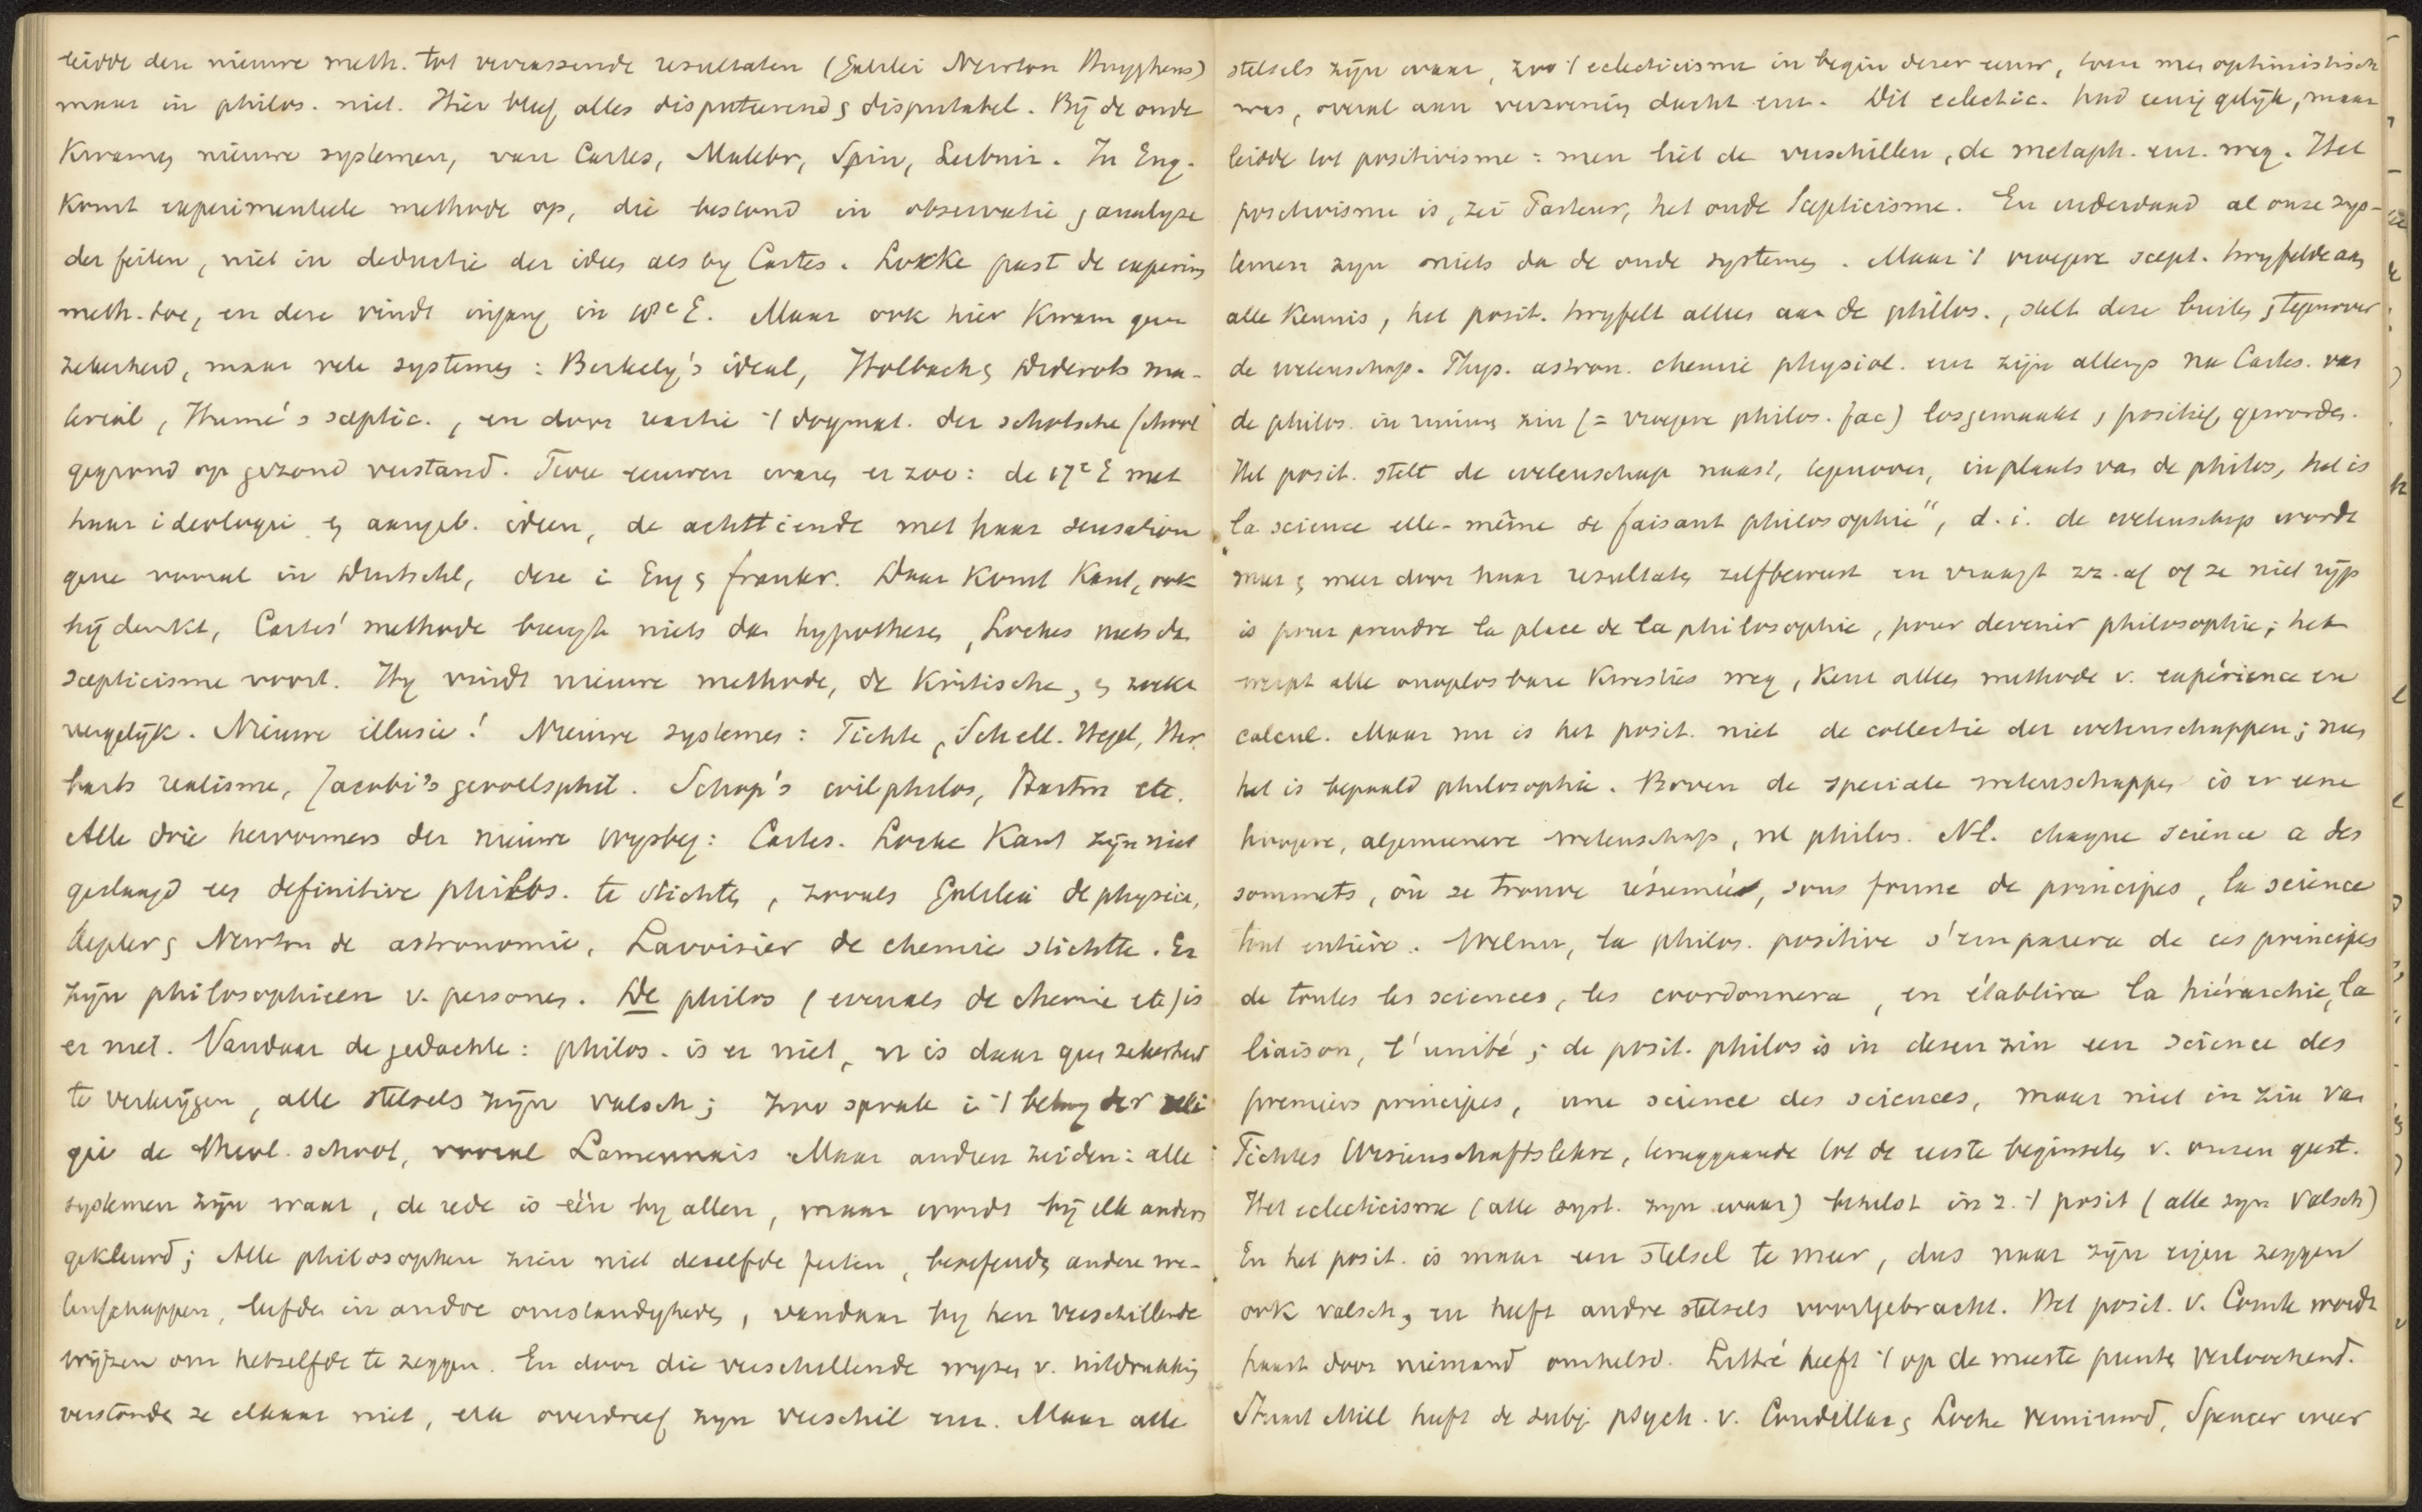 leidde deze nieuwe meth. tot verrassende resultaten (Galilei Newton Huyghens)
maar in philos. niet. Hier bleef alles disputeerend en disputabel. Bij de oude
kwamen nieuwe systemen, van Cartes, Malebr, Spin, Leibniz. In Eng.
komt experimenteele methode op, die bestond in observatie en analyse
der feiten, niet in deductie der idees als by Cartes. Locke past de experim
meth. toe, en deze vindt ingang in 18e E. Maar ook hier kwam geen
zekerheid, maar vele systemen: Berkely's ideal, Holbach en Diderots ma-
terial, Hume's sceptic., en door reactie 't dogmat. der schotsche school
gegrond op gezond verstand. Twee eeuwen waren er zoo: de 17e E met
haar ideologie en aangeb. ideen, de achttiende met haar sensation
gene vooral in Duitschl, deze i Eng en frankr. Daar komt Kant, ook
hij denkt, Cartes' methode brengt niets dan hypotheses, Lockes niets dan
scepticisme voort. Hy vindt nieuwe methode, de kritische, en zoekt
vergelijk. Nieuwe illusie! Nieuwe systemes: Fichte, Schell. Hegel, Her
barts realisme, Jacobi's gevoelsphil. Schop's wilphilos, Hartm etc.
Alle drie hervormers der nieuwe wysbeg: Cartes. Locke Kant zijn niet
geslaagd een definitive philos. te stichten, zooals Galilei de physica,
Kepler en Newton de astronomie, Lavoisier de chemie stichtte. Er
zijn philosophieen v. personen. De philos (evenals de chemie etc) is
er niet. Vandaar de gedachte: philos. is er niet, er is daar geen zekerheid
te verkrijgen, alle stelsels zijn valsch; zoo sprak i 't belang der reli
gie de theol. school, vooral Lamennais Maar andren zeiden: alle
systemen zijn waar, de rede is één by allen, maar wordt bij elk anders
gekleurd; Alle philosophen zien niet dezelfde feiten, beoefenden andere we-
tenschappen, leefden in andre omstandigheden, vandaar by hen verschillende
wijzen om hetzelfde te zeggen. En door die verschillende wyzen v. uitdrukking
verstonden ze elkaar niet, elk overdreef zyn verschil enz. Maar alle
stelsels zijn waar, zoo 't eclecticisme in begin dezer eeuw, toen men optimistisch
was, overal aan verzoening dacht enz. Dit eclectic. had eenig gelijk, maar
leidde tot positivisme: men liet de verschillen, de metaph. enz. weg. Het
positivisme is, zei Pasteur, het oude scepticisme. En inderdaad al onze sys-
temen zyn niets dan de oude systemes. Maar 't vroegere scept. twyfelde aan
alle kennis, het posit. twyfelt alleen aan de philos., stelt deze buiten en tegenover
de wetenschap. Phys. astron. chemie physiol. enz zijn allengs na Cartes. van
de philos. in ruimen zin (= vroegere philos. fac) losgemaakt en positief geworden.
Het posit. stelt de wetenschap naast, tegenover, in plaats van de philos, het is
"la science elle-même se faisant philosophie", d.i. de wetenschap wordt
meer en meer door haar resultaten zelfbewust en vraagt zz. af of ze niet rijp
is pour prendre la place de la philosophie, pour devenir philosophie; het
werpt alle onoplosbare kwesties weg, kent alleen methode v. expérience en
calcul. Maar nu is het posit. niet de collectie der wetenschappen; neen
het is bepaald philosophie. Boven de speciale wetenschappen is er eene
hoogere, algemeenere wetenschap, nl philos. Nl. chaque science a des
sommets, où se trouve résumée, sous forme de principes, la science
tout entière. Welnu, la philos. positive s'emparera de ces principes
de toutes les sciences, les coordonnera, en établira la hiérarchie, la
liaison, l'unité; de posit. philos is in dezen zin een science des
premiers principes, une science des sciences, maar niet in zin van
Fichtes Wissenschaftslehre, teruggaande tot de eerste beginselen v. onzen geest.
Het eclecticisme (alle syst. zyn waar) behelst in z. 't posit (alle zyn valsch)
En het posit. is maar een stelsel te meer, dus naar zijn eigen zeggen
ook valsch, en heeft andre stelsels voortgebracht. Het posit. v. Comte wordt
haast door niemand omhelsd. Littré heeft 't op de meeste punten verloochend.
Stuart Mill heeft de subj. psych. v. Condillac en Locke vernieuwd, Spencer weer